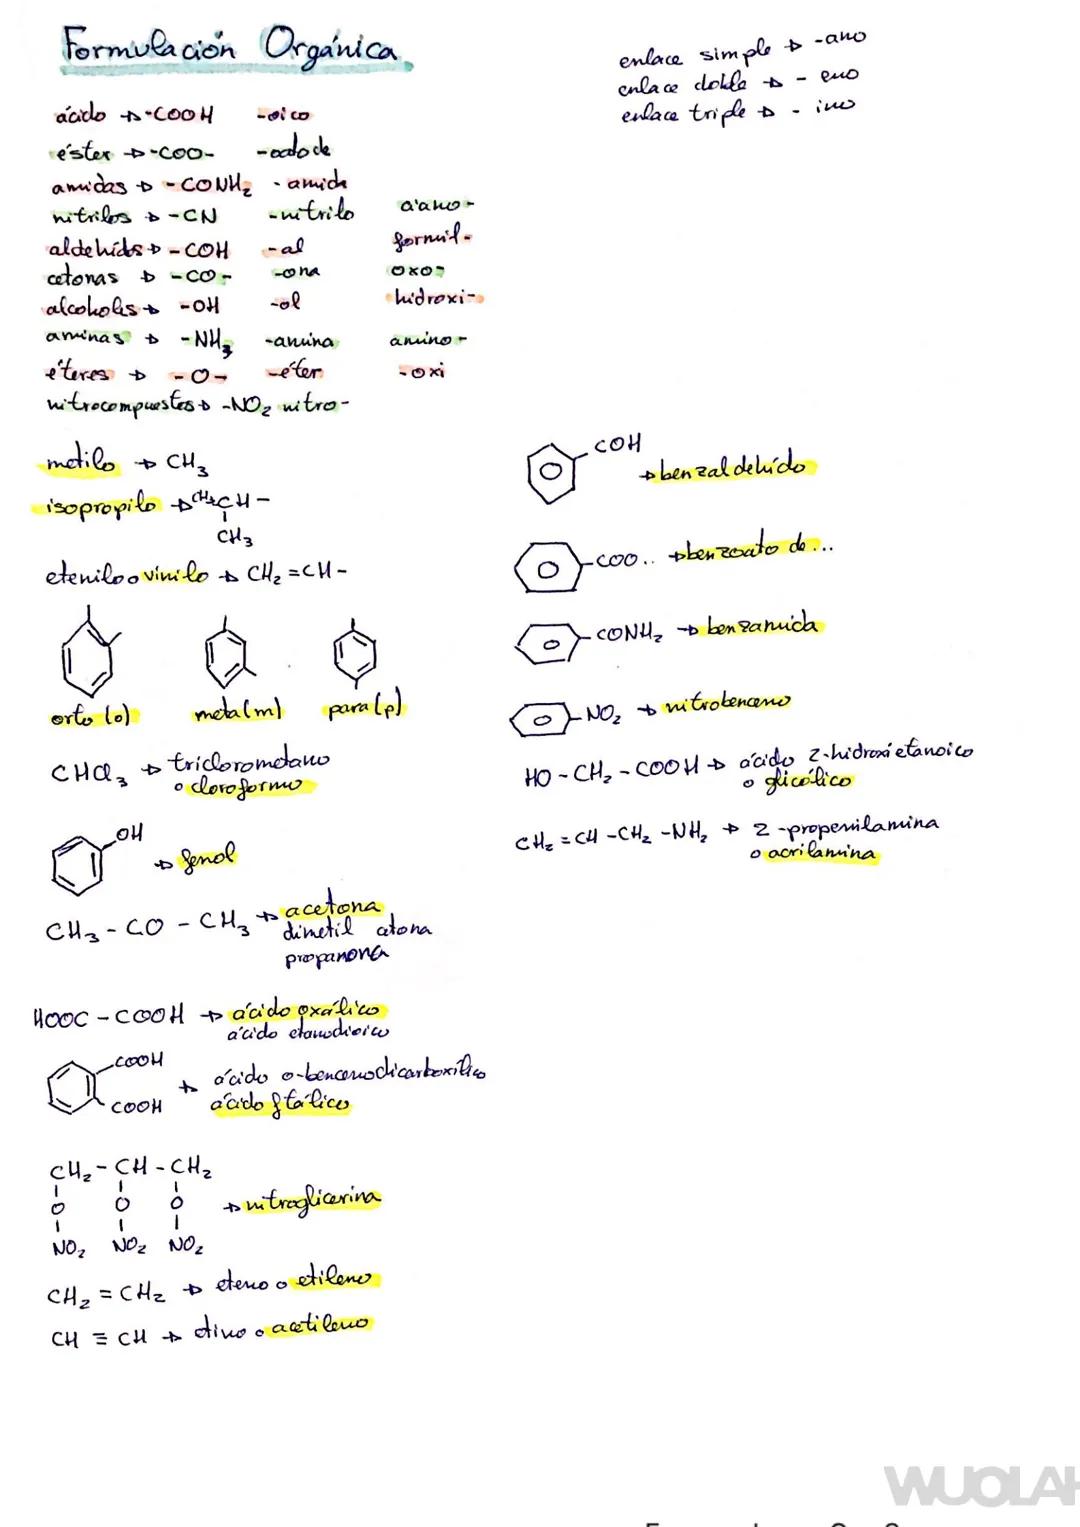 Formulación Orgánica
enlace simple → -ano
enlace doble → -eno
enlace triple → -ino
ácido → -COOH -oico
éster → -COO- -oato de
amidas → -CONH₂ -amida
nitrilos → -CN -nitrilo ciano-
aldehids → -COH -al formil-
cetonas → -CO- -ona oxo-
alcoholes → -OH -ol hidroxi-
aminas → -NH₃ -amina amino-
éteres → -O- -éter -oxi
nitrocompuestos → -NO₂ nitro-
metilo → CH₃
isopropilo → CH₃CH-
CH₃
etenilo o vinilo → CH₂=CH-
orto (o) meta (m) para (p)
CHCl₃ → triclorometano
o cloroformo
OH
→ fenol
CH₃-CO-CH₃ → acetona
dimetil cetona
propanona
HOOC-COOH → ácido oxálico
ácido etanodioico
COOH
COOH
→ ácido o-bencenodicarboxílico
ácido ftálico
CH₂-CH-CH₂
O O O
NO₂ NO₂ NO₂
→ nitroglicerina
CH₂=CH₂ → eteno o etileno
CH≡CH → etino o acetileno
COH
→ benzaldehído
-COO.. → benzoato de...
-CONH₂ → benzamida
-NO₂ → nitrobenceno
HO-CH₂-COOH → ácido 2-hidroxietanoico
o glicólico
CH₂=CH-CH₂-NH₂ → 2-propenilamina
o acrilamina
WUOLAH